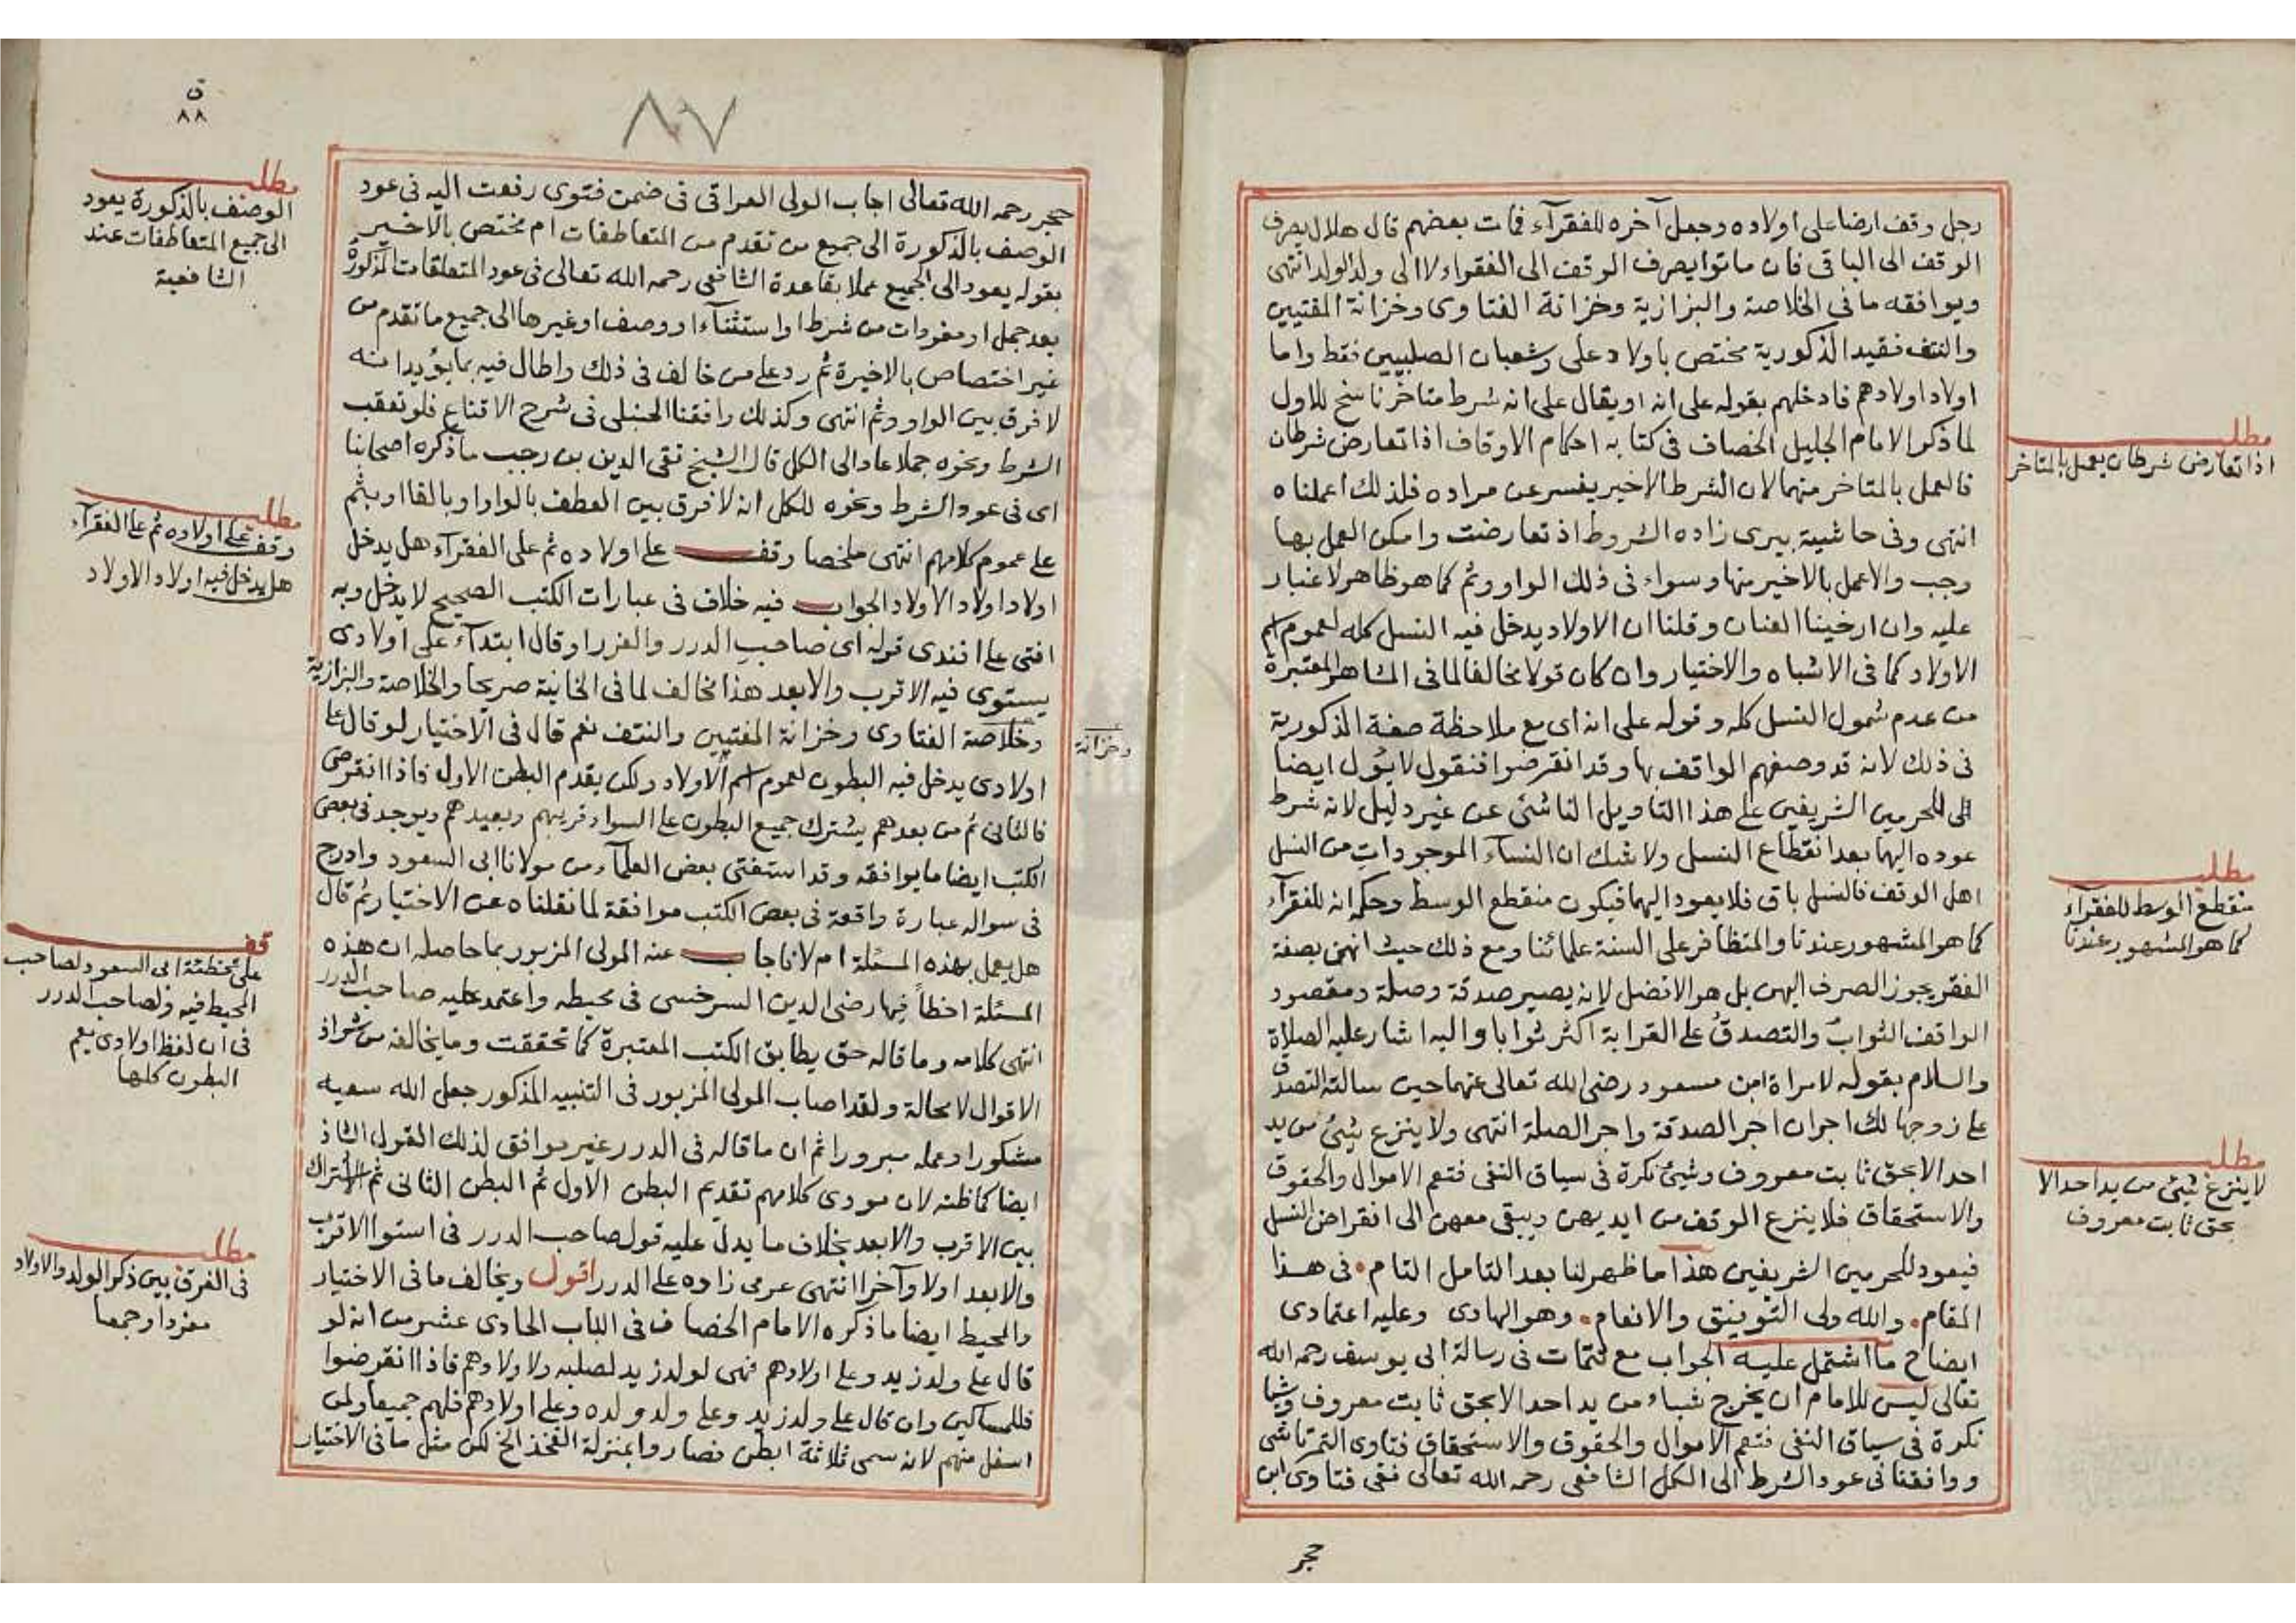 رجل وقف ارضا على اولاده وجعل آخره للفقرآء فمات بعضهم قال هلال يصرف
الوقف الى الباقى فان ماتوا يصرف الوقف الى الفقراء لا الى ولد الولد انتهى
ويوافقه ما فى الخلاصة والبزازية وخزانة الفتاوى وخزانة المفتيين
والنتف فقيد الذكورية مختص باولاد على وشعبان الصلبيين فقط واما
اولاد اولادهم فادخلهم بقوله على انه او يقال على انه شرط متاخر ناسخ للاول
لما ذكر الامام الجليل الخصاف فى كتابه احكام الاوقاف اذا تعارض شرطان
فالعمل بالمتاخر منهما لان الشرط الاخير يفسر عن مراده فلذلك اعملناه
انتهى وفى حاشية بيرى زاده الشروط اذ تعارضت وامكن العمل بها
وجب والا عمل بالاخير منها وسواء فى ذلك الواو وثم كما هو ظاهر لا غبار
عليه وان ارخينا العنان وقلنا ان الاولاد يدخل فيه النسل كله لعموم اسم
الاولاد كما فى الاشباه والاختيار وان كان قولا مخالفا لما فى المشاهير المعتبرة
من عدم شمول النسل كله وقوله على انه اى مع ملاحظة صفة الذكورية
فى ذلك لانه قد وصفهم الواقف بها وقد انقرضوا فنقول لا يؤل ايضا
الى للحرمين الشريفين على هذا التاويل الناشئ عن غير دليل لانه شرط
عوده اليها بعد انقطاع النسل ولا شك ان النسآء الموجودات من النسل
اهل الوقف فالنسل باق فلا يعود اليهما فيكون منقطع الوسط وحكمه انه للفقرآء
كما هو المشهور عندنا والمتظافر على السنة علمائنا ومع ذلك حيث انهن بصفة
الفقر يجوز الصرف اليهن بل هو الافضل لانه يصير صدقة وصلة ومقصود
الواقف الثواب والتصدق على القرابة اكثر ثوابا واليه اشار عليه الصلاة
والسلام بقوله لامراة ابن مسعود رضى الله تعالى عنهما حين سالته التصدق
على زوجها لك اجران اجر الصدقة واجر الصلة انتهى ولا ينزع شيئ من يد
احد الا بحق ثابت معروف وشيئ نكرة فى سياق النفى فتعم الاموال والحقوق
والاستحقاق فلا ينزع الوقف من ايديهن ويبقى معهن الى انقراض النسل
فيعود للحرمين الشريفين هذا ما ظهر لنا بعد التامل التام • فى هذا
المقام • والله ولى التوفيق والانعام • وهو الهادى وعليه اعتمادى
ايضاح ما اشتمل عليه الجواب مع تتمات فى رسالة ابى يوسف رحمه الله
تعالى ليس للامام ان يخرج شيأ من يد احد الا بحق ثابت معروف وشيأ
نكرة فى سياق النفى فتعم الاموال والحقوق والاستحقاق فتاوى التمرتاشى
ووافقنا فى عود الشرط الى الكل الشافعى رحمه الله تعالى ففى فتاوى ابن
حجر
مطلب
اذا تعارض شرطان يعمل بالمتاخر
مطلب
منقطع الوسط للفقرآء
كما هو المشهور عندنا
مطلب
لا ينزع شيئ من يد احد الا
بحق ثابت معروف
ق
٨٨
٨٧
حجر رحمه الله تعالى اجاب الولى العراقى فى ضمن فتوى رفعت اليه فى عود
الوصف بالذكورة الى جميع من تقدم من المتعاطفات ام مختص بالاخير
بقوله يعود الى الجميع عملا بقاعدة الشافعى رحمه الله تعالى فى عود المتعلقات المذكورة
بعد جمل او مفردات من شرط او استثنآء او وصف او غيرها الى جميع ما تقدم من
غير اختصاص بالاخيرة ثم رد على من خالف فى ذلك واطال فيه بما يؤيد انه
لا فرق بين الواو وثم انتهى وكذلك وافقنا الحنبلى فى شرح الاقناع فلو تعقب
الشرط ونحوه جملا عاد الى الكل قال الشيخ تقى الدين بن رجب ما ذكره اصحابنا
اى فى عود الشرط ونحوه للكل انه لا فرق بين العطف بالواو او بالفا او بثم
على عموم كلامهم انتهى ملخصا وقف على اولاده ثم على الفقرآء هل يدخل
اولاد اولاد الاولاد الجواب فيه خلاف فى عبارات الكتب الصحيح لا يدخل وبه
افتى على افندى قوله اى صاحب الدرر والغرر او قال ابتدآء على اولادى
يستوى فيه الاقرب والابعد هذا مخالف لما فى الخانية صريحا والخلاصة والبزازية
وخلاصة الفتاوى وخزانة المفتيين والنتف نعم قال فى الاختيار لو قال على
وخزانة
اولادى يدخل فيه البطون لعموم اسم الاولاد ولكن يقدم البطن الاول فاذا انقرض
فالثانى ثم من بعدهم يشترك جميع البطون على السواء قريبهم وبعيدهم ويوجد فى بعض
الكتب ايضا ما يوافقه وقد استفتى بعض العلمآء من مولانا ابى السعود وادرج
فى سواله عبارة واقعة فى بعض الكتب موافقة لما نقلناه عن الاختيار ثم قال
هل يعمل بهذه المسئلة ام لا فاجاب عنه المولى المزبور بما حاصله ان هذه
المسئلة اخطأ فيها رضى الدين السرخسى فى محيطه واعتمد عليه صاحب الدرر
انتهى كلامه وما قاله حق يطابق الكتب المعتبرة كما تحققت وما يخالفه من شواذ
الاقوال لا محالة ولقد اصاب المولى المزبور فى التنبيه المذكور جعل الله سعيه
مشكورا وعمله مبرورا ثم ان ما قاله فى الدرر غير موافق لذلك القول الشاذ
ايضا كما ظنه لان مودى كلامهم تقديم البطن الاول ثم البطن الثانى ثم الاشتراك
بين الاقرب والابعد بخلاف ما يدل عليه قول صاحب الدرر فى استوا الاقرب
والابعد اولا وآخرا انتهى عزمى زاده على الدرر اقول ويخالف ما فى الاختيار
والمحيط ايضا ما ذكره الامام الخصاف فى الباب الحادى عشر من انه لو
قال على ولد زيد وعلى اولادهم فهى لولد زيد لصلبه ولاولادهم فاذا انقرضوا
فللمساكين وان قال على ولد زيد وعلى ولد ولده وعلى اولادهم فلهم جميعا ولمن
اسفل منهم لانه سمى ثلاثة ابطن فصاروا بمنزلة الفخذ الخ لكن مثل ما فى الاختيار
مطلب
الوصف بالذكورة يعود
الى جميع المتعاطفات عند
الشافعية
مطلب
وقف على اولاده ثم على الفقرآء
هل يدخل فيه اولاد الاولاد
قف
على تخطئة ابى السعود لصاحب
المحيط فيه ولصاحب الدرر
فى ان لفظ اولادى يعم
البطون كلها
مطلب
فى الفرق بين ذكر الولد والاولاد
مفردا وجمعا